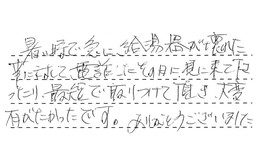 暑い時で急に給湯器が壊れた
事に対して、電話したその日に見に来て下
さったり、最短で取りつけて頂き、大変
有がたかったです。ありがとうございました